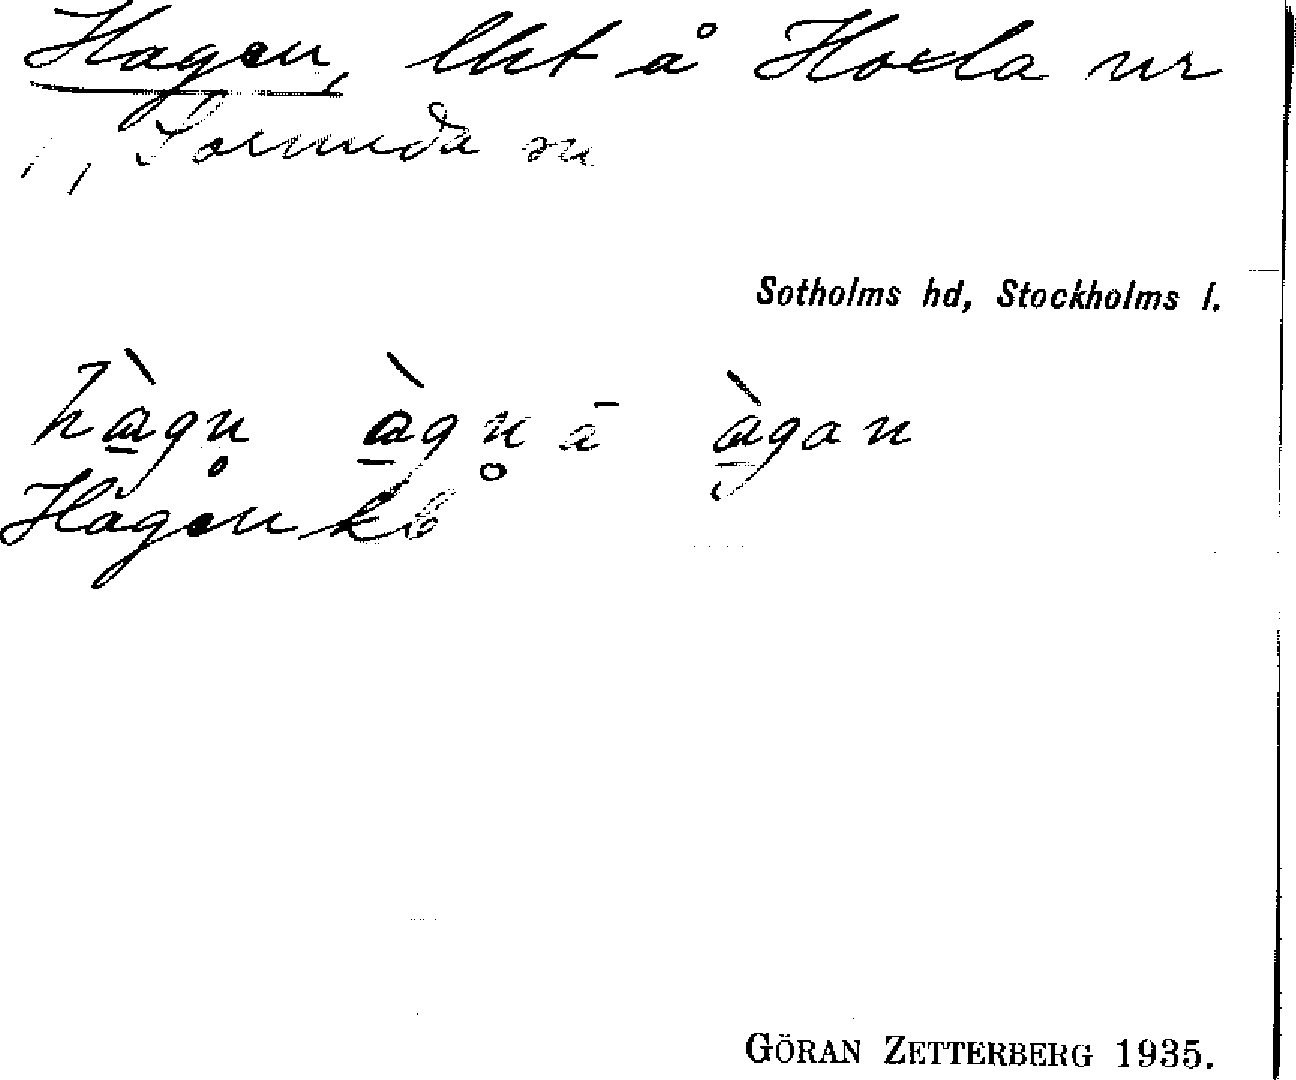 Hagen, lht å Hoxla nr
1, Sorunda sn
Sotholms hd, Stockholms l.
hàgn̥ àgn̥ ā àgan
Hagen kb
GÖRAN ZETTERBERG 1935.